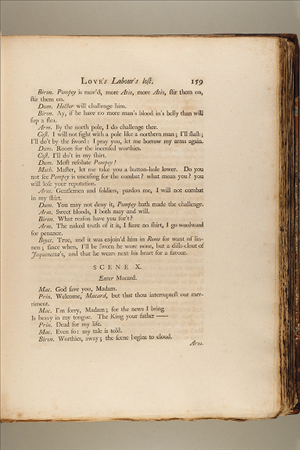 LOVE's Labour's lost. 159
Biron. Pompey is mov'd, more Ates, more Ates, stir them on,
stir them on.
Dum. Hector will challenge him.
Biron. Ay, if he have no more man's blood in's belly than will
sup a flea.
Arm. By the north pole, I do challenge thee.
Cost. I will not fight with a pole like a northern man; I'll slash;
I'll do't by the sword: I pray you, let me borrow my arms again.
Dum. Room for the incensed worthies.
Cost. I'll do't in my shirt.
Dum. Most resolute Pompey!
Moth. Master, let me take you a button-hole lower. Do you
not see Pompey is uncasing for the combat? what mean you? you
will lose your reputation.
Arm. Gentlemen and soldiers, pardon me, I will not combat
in my shirt.
Dum. You may not deny it, Pompey hath made the challenge.
Arm. Sweet bloods, I both may and will.
Biron. What reason have you for't?
Arm. The naked truth of it is, I have no shirt, I go woolward
for penance.
Boyet. True, and it was enjoin'd him in Rome for want of lin-
nen; since when, I'll be sworn he wore none, but a dish-clout of
Jaquenetta's, and that he wears next his heart for a favour.
SCENE X.
Enter Macard.
Mac. God save you, Madam.
Prin. Welcome, Macard, but that thou interruptest our mer-
riment.
Mac. I'm sorry, Madam; for the news I bring
Is heavy in my tongue. The King your father ——
Prin. Dead for my life.
Mac. Even so: my tale is told.
Biron. Worthies, away; the scene begins to cloud.
Arm.